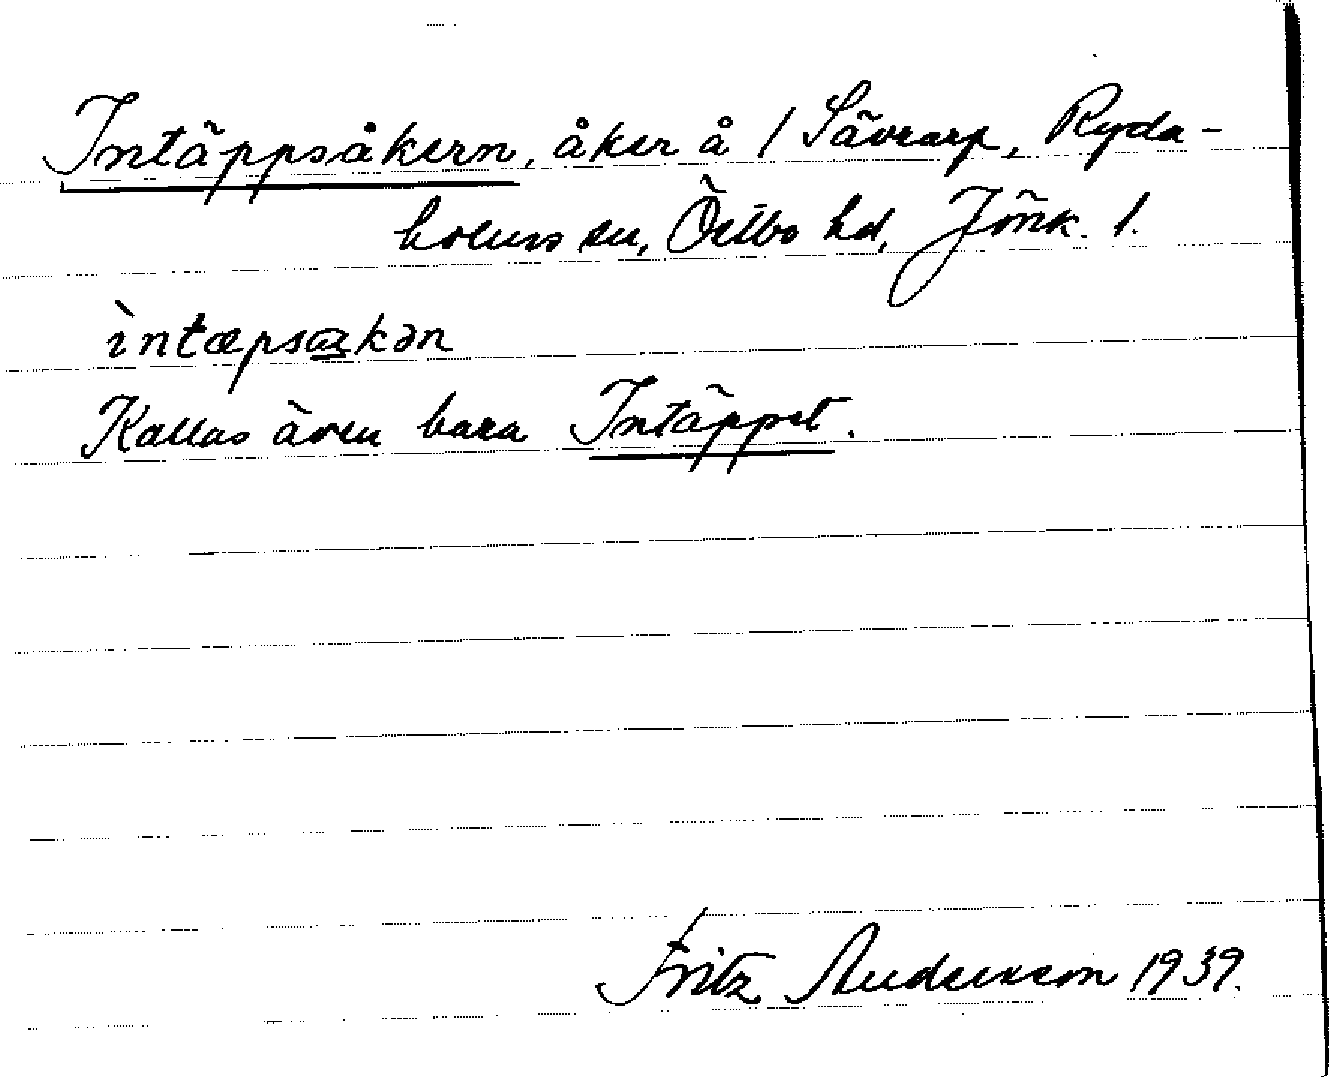 Intäppsåkern, åker å 1 Sävrarp, Ryda-
holms sn, Östbo hd, Jönk. l.
ìntæpsåkən
Kallas även bara Intäppet.
Fritz Andersson 1939.